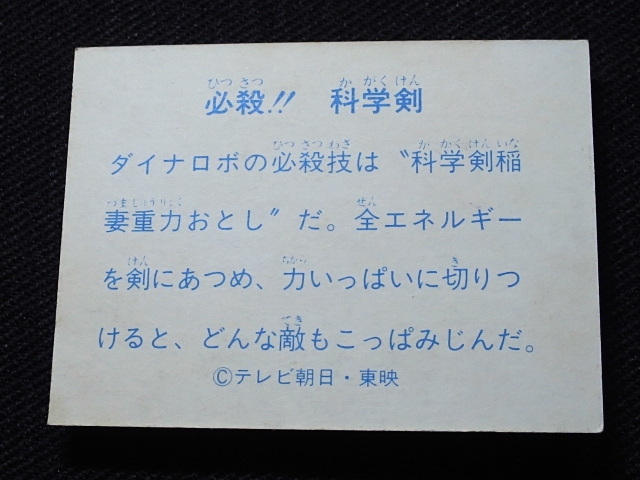 ひつ さつ か がく けん
必殺!! 科学剣
ひつ さつ わざ か がく けん いな
ダイナロボの必殺技は〝科学剣稲
づま じゅうりょく ぜん
妻重力おとし〟だ。全エネルギー
けん ちから き
を剣にあつめ、力いっぱいに切りつ
てき
けると、どんな敵もこっぱみじんだ。
©テレビ朝日・東映